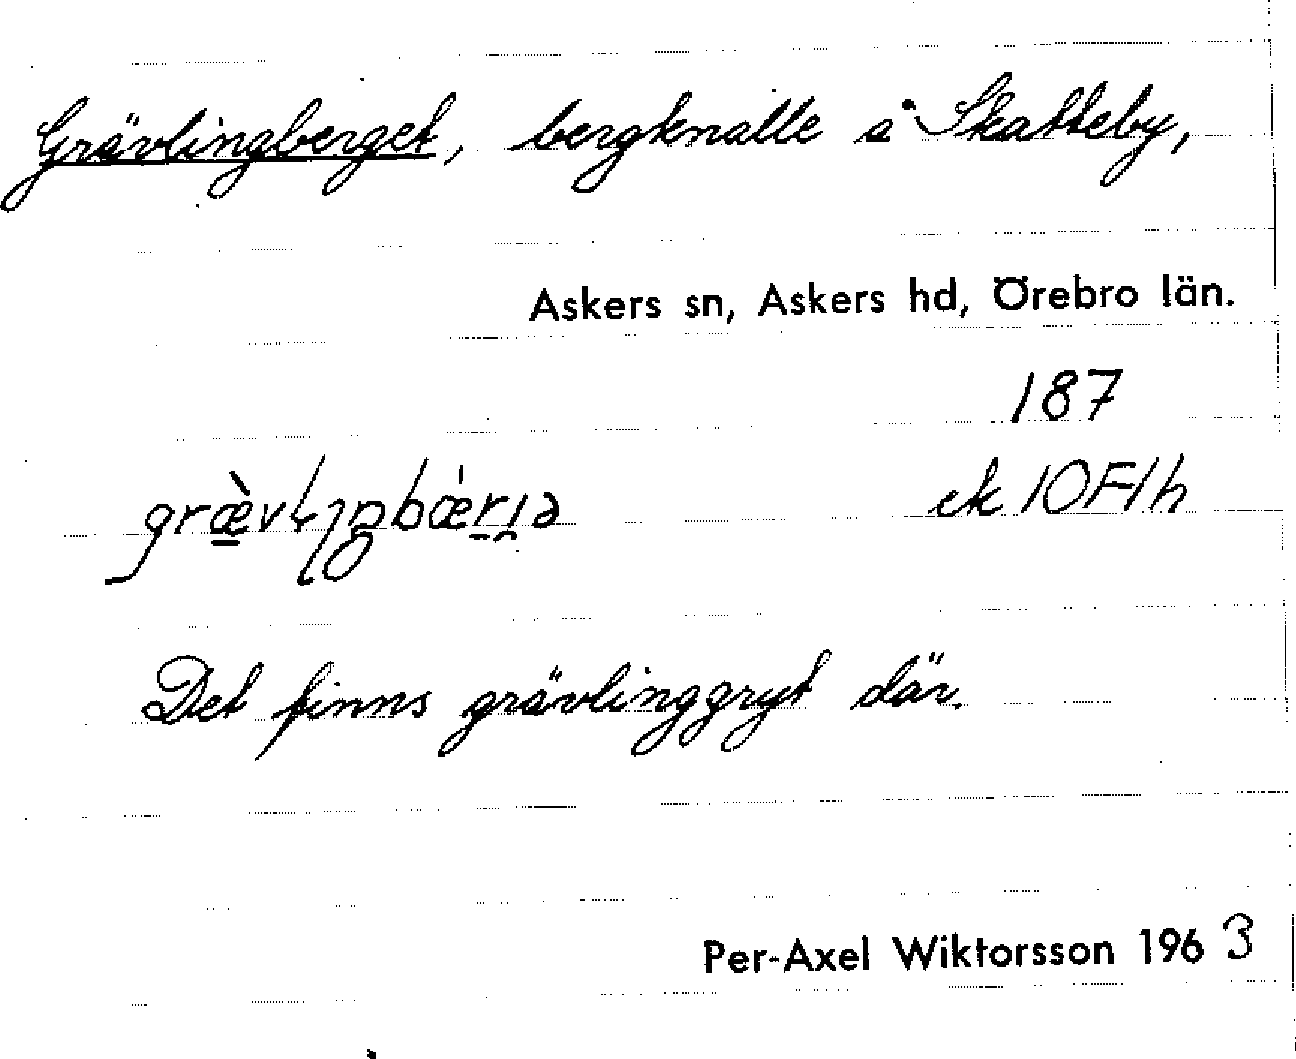 Grävlingberget, bergknalle å Skatteby,
Askers sn, Askers hd, Örebro län.
187
ek 10F1h
Det finns grävlinggryt där.
Per-Axel Wiktorsson 1963